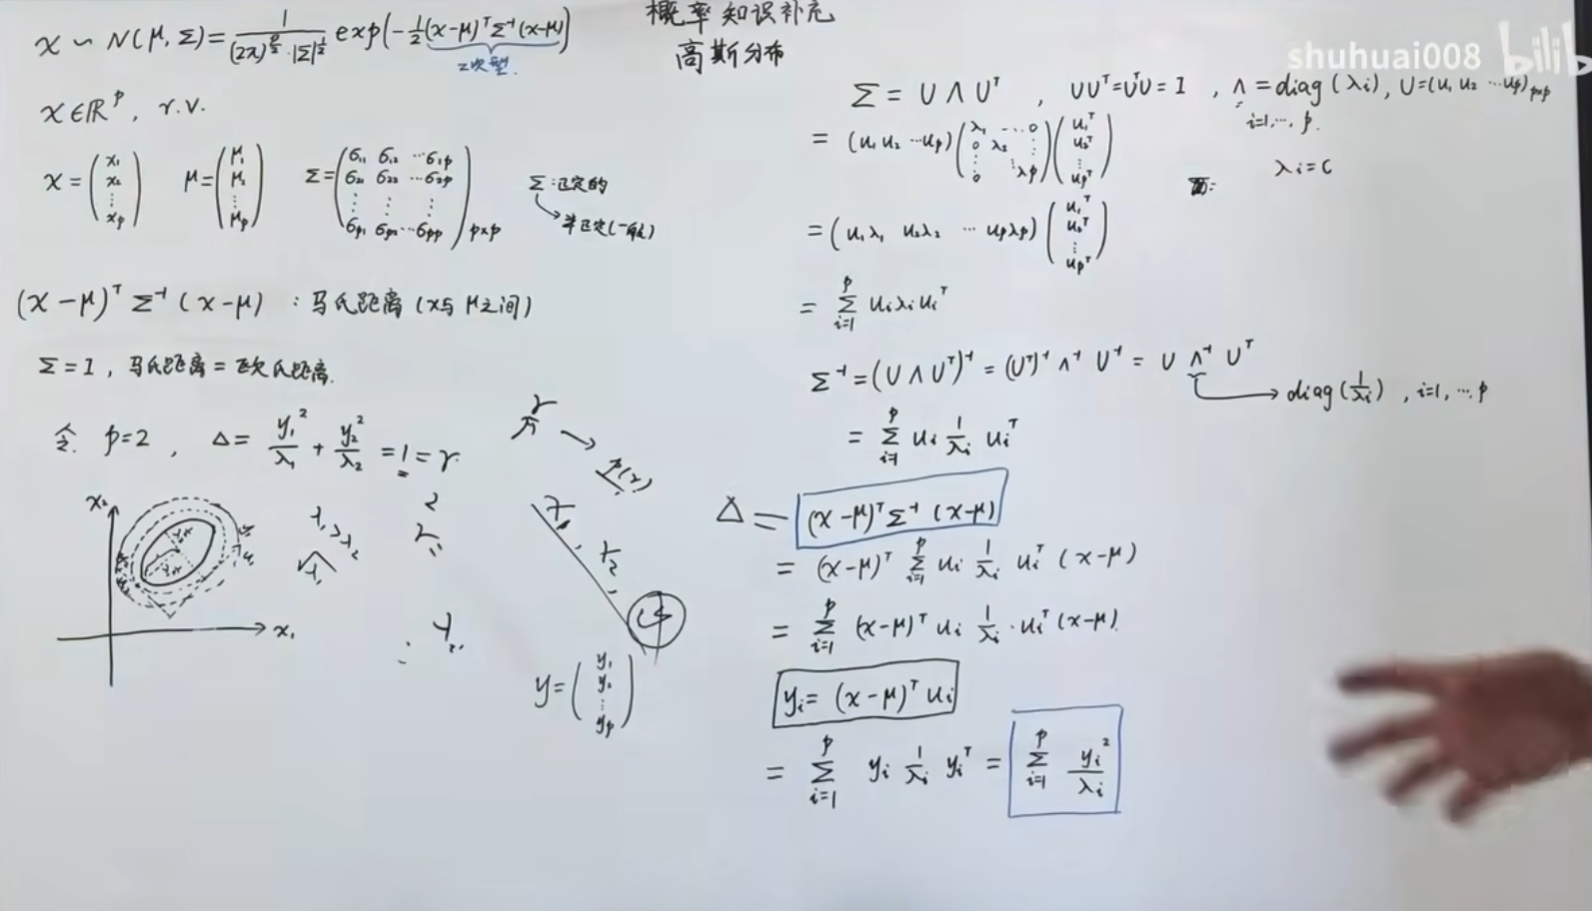 概率知识补充
高斯分布
shuhuai008 bilib
x ~ N(μ, Σ) = 1/((2π)^{p/2}·|Σ|^{1/2}) exp(-1/2 (x-μ)^T Σ^{-1} (x-μ))
二次型.
x ∈ ℝ^p, r.v.
x = (x₁ x₂ ⋮ x_p) μ = (μ₁ μ₂ ⋮ μ_p) Σ = (σ₁₁ σ₁₂ ⋯ σ₁p σ₂₁ σ₂₂ ⋯ σ₂p ⋮ ⋮ ⋮ σp₁ σp₂ ⋯ σpp)_{p×p}
Σ:正定的
半正定(一般)
(x-μ)^T Σ^{-1} (x-μ) : 马氏距离 (x与μ之间)
Σ = I, 马氏距离 = 欧氏距离.
令 p=2, Δ = y₁²/λ₁ + y₂²/λ₂ = 1 = r
x₂
x₁
λ₁>λ₂
y = (y₁ y₂ ⋮ y_p)
Σ = U Λ U^T, UU^T = U^TU = I, Λ = diag(λᵢ), U = (u₁ u₂ ⋯ u_p)_{p×p}
i=1,⋯, p.
= (u₁ u₂ ⋯ u_p) (λ₁ ⋯ 0 0 λ₂ ⋮ ⋮ 0 λ_p) (u₁^T u₂^T ⋮ u_p^T)
λᵢ = c
= (u₁λ₁ u₂λ₂ ⋯ u_pλ_p) (u₁^T u₂^T ⋮ u_p^T)
= Σ_{i=1}^{p} uᵢ λᵢ uᵢ^T
Σ^{-1} = (U Λ U^T)^{-1} = (U^T)^{-1} Λ^{-1} U^{-1} = U Λ^{-1} U^T
diag(1/λᵢ), i=1, ⋯ p
= Σ_{i=1}^{p} uᵢ 1/λᵢ uᵢ^T
Δ = (x-μ)^T Σ^{-1} (x-μ)
= (x-μ)^T Σ_{i=1}^{p} uᵢ 1/λᵢ uᵢ^T (x-μ)
= Σ_{i=1}^{p} (x-μ)^T uᵢ 1/λᵢ · uᵢ^T (x-μ)
yᵢ = (x-μ)^T uᵢ
= Σ_{i=1}^{p} yᵢ 1/λᵢ yᵢ^T = Σ_{i=1}^{p} yᵢ²/λᵢ